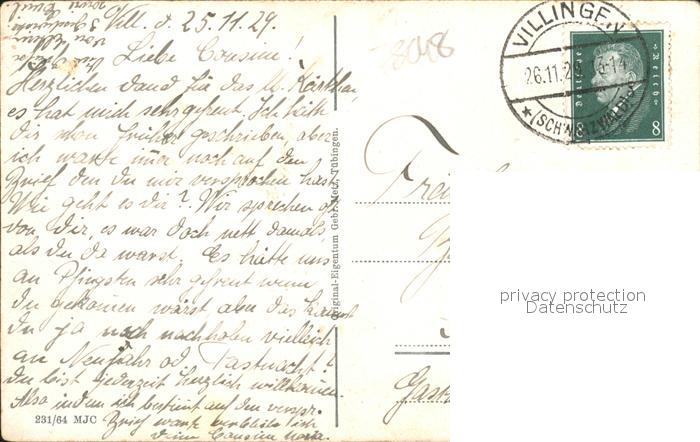 Vill. d. 25.11.29.
Liebe Cousine!
Herzlichen Dank für das lb. Kärtchen,
es hat mich sehr gefreut. Ich hätte
Dir schon früher geschrieben, aber
ich warte nur noch auf den
Brief den Du mir versprochen hast.
Wie geht es Dir? Wir sprechen oft
von Dir, es war doch nett damals,
als Du da warst. Es hätte uns
an Pfingsten sehr gefreut wenn
Du gekommen wärst aber das kannst
Du ja noch nachholen vielleicht
an Neujahr od. Fastnacht!
Du bist jederzeit herzlich willkommen.
Also indem ich bestimmt auf den verspr.
Brief warte verbleibe ich
Deine Cousine Maria.
231/64 MJC
Original-Eigentum Gebr. Metz, Tübingen.
78048
VILLINGEN
26.11.29
(SCHWARZWALD)
Deutsches Reich
8
privacy protection
Datenschutz